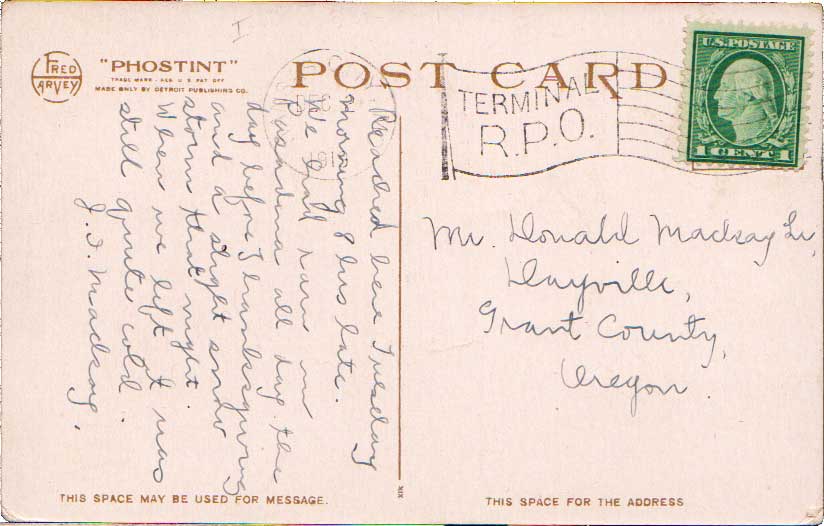 FRED
HARVEY
"PHOSTINT"
TRADE MARK - REG U.S. PAT. OFF
MADE ONLY BY DETROIT PUBLISHING CO.
I
POST CARD
DEC
191
TERMINAL
R.P.O.
U.S. POSTAGE
1 CENT 1
Reached here Tuesday
morning 8 hrs late.
We had rain in
Pasadena all day the
day before Thanksgiving
and a slight snow
storm that night.
When we left it was
still quite cold
J. I. Mackay.
Mr. Donald Mackay Sr,
Dayville,
Grant County,
Oregon.
XIX
THIS SPACE MAY BE USED FOR MESSAGE.
THIS SPACE FOR THE ADDRESS